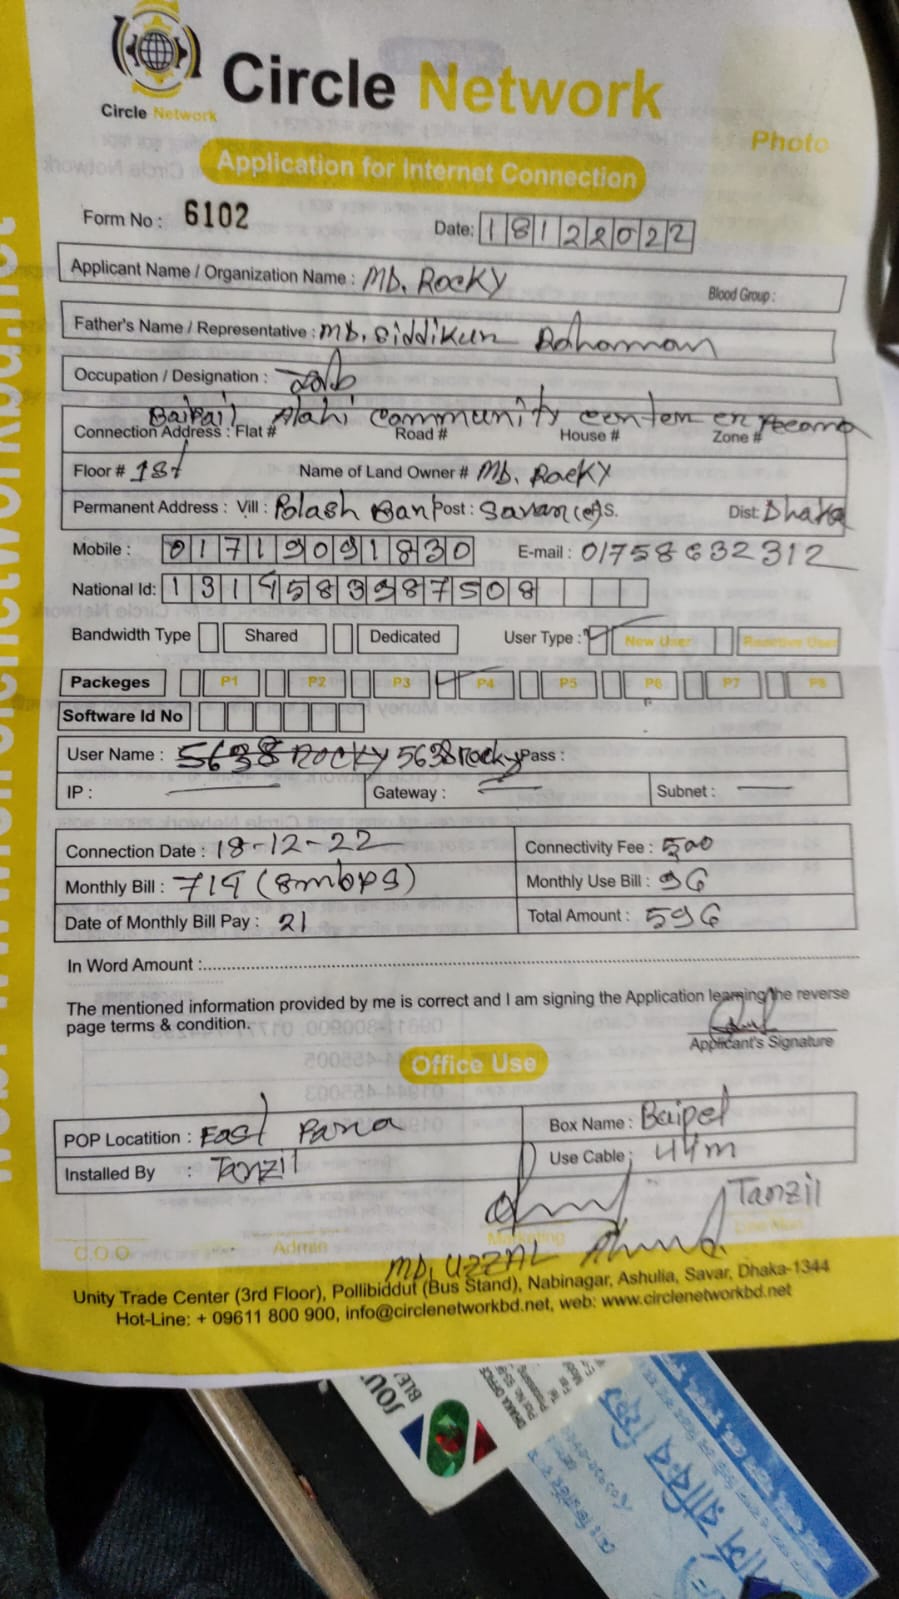 Circle Network
Circle Network
Photo
Application for Internet Connection
Form No : 6102
Date: 18122022
Applicant Name / Organization Name : MD. ROCKY
Blood Group :
Father's Name / Representative : MD. Siddikur Rahaman
Occupation / Designation :
Baipail Alahi community center
Connection Address : Flat # Road # House # Zone #
Floor # 1st Name of Land Owner # MD. ROCKY
Permanent Address : Vill : Polash Post : Savar P.S. Dist: Dhaka
Mobile : 01719091830 E-mail : 01758632312
National Id:
Bandwidth Type Shared Dedicated User Type : New User
Packeges P1 P2 P3 P4 P5 P6 P7 P8
Software Id No
User Name : 5638 ROCKY 5638rocky Pass :
IP : Gateway : Subnet :
Connection Date : 18-12-22 Connectivity Fee : 500
Monthly Bill : (8mbps) Monthly Use Bill : 96
Date of Monthly Bill Pay : 21 Total Amount : 596
In Word Amount :
The mentioned information provided by me is correct and I am signing the Application learning the reverse
page terms & condition.
Applicant's Signature
Office Use
POP Locatition : East Para Box Name : Baipel
Installed By : Tanzil Use Cable : 44m
Tanzil
C.O.O Admin Marketing
MD. UZZAL Ahmed
Unity Trade Center (3rd Floor), Pollibiddut (Bus Stand), Nabinagar, Ashulia, Savar, Dhaka-1344
Hot-Line: + 09611 800 900, info@circlenetworkbd.net, web: www.circlenetworkbd.net